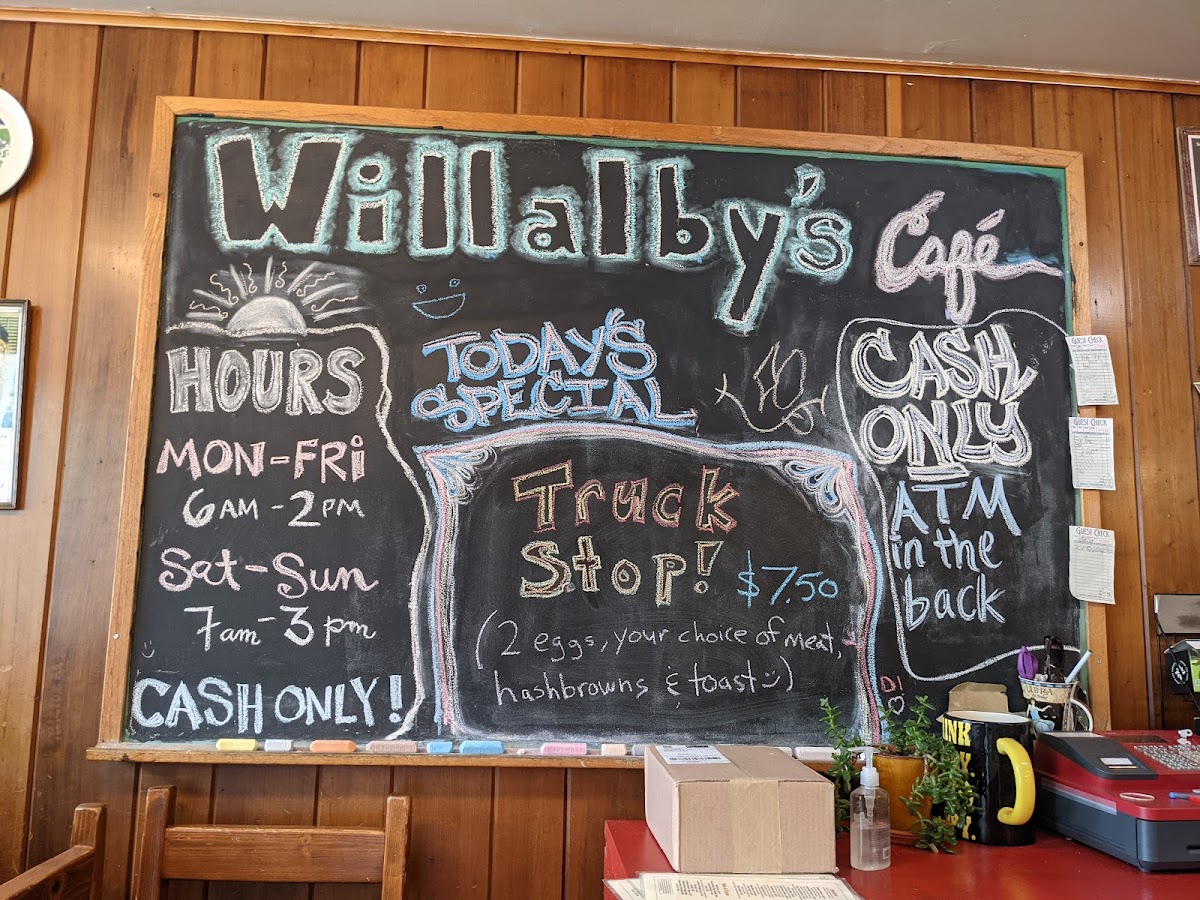 Willalby's
Café
HOURS
MON-FRI
6AM-2PM
Sat-Sun
7am-3pm
CASH ONLY!
TODAY'S
SPECIAL
Truck
Stop!
$7.50
(2 eggs, your choice of meat,
hashbrowns & toast)
CASH
ONLY
ATM
in the
back
D!
GUEST CHECK
GUEST CHECK
GUEST CHECK